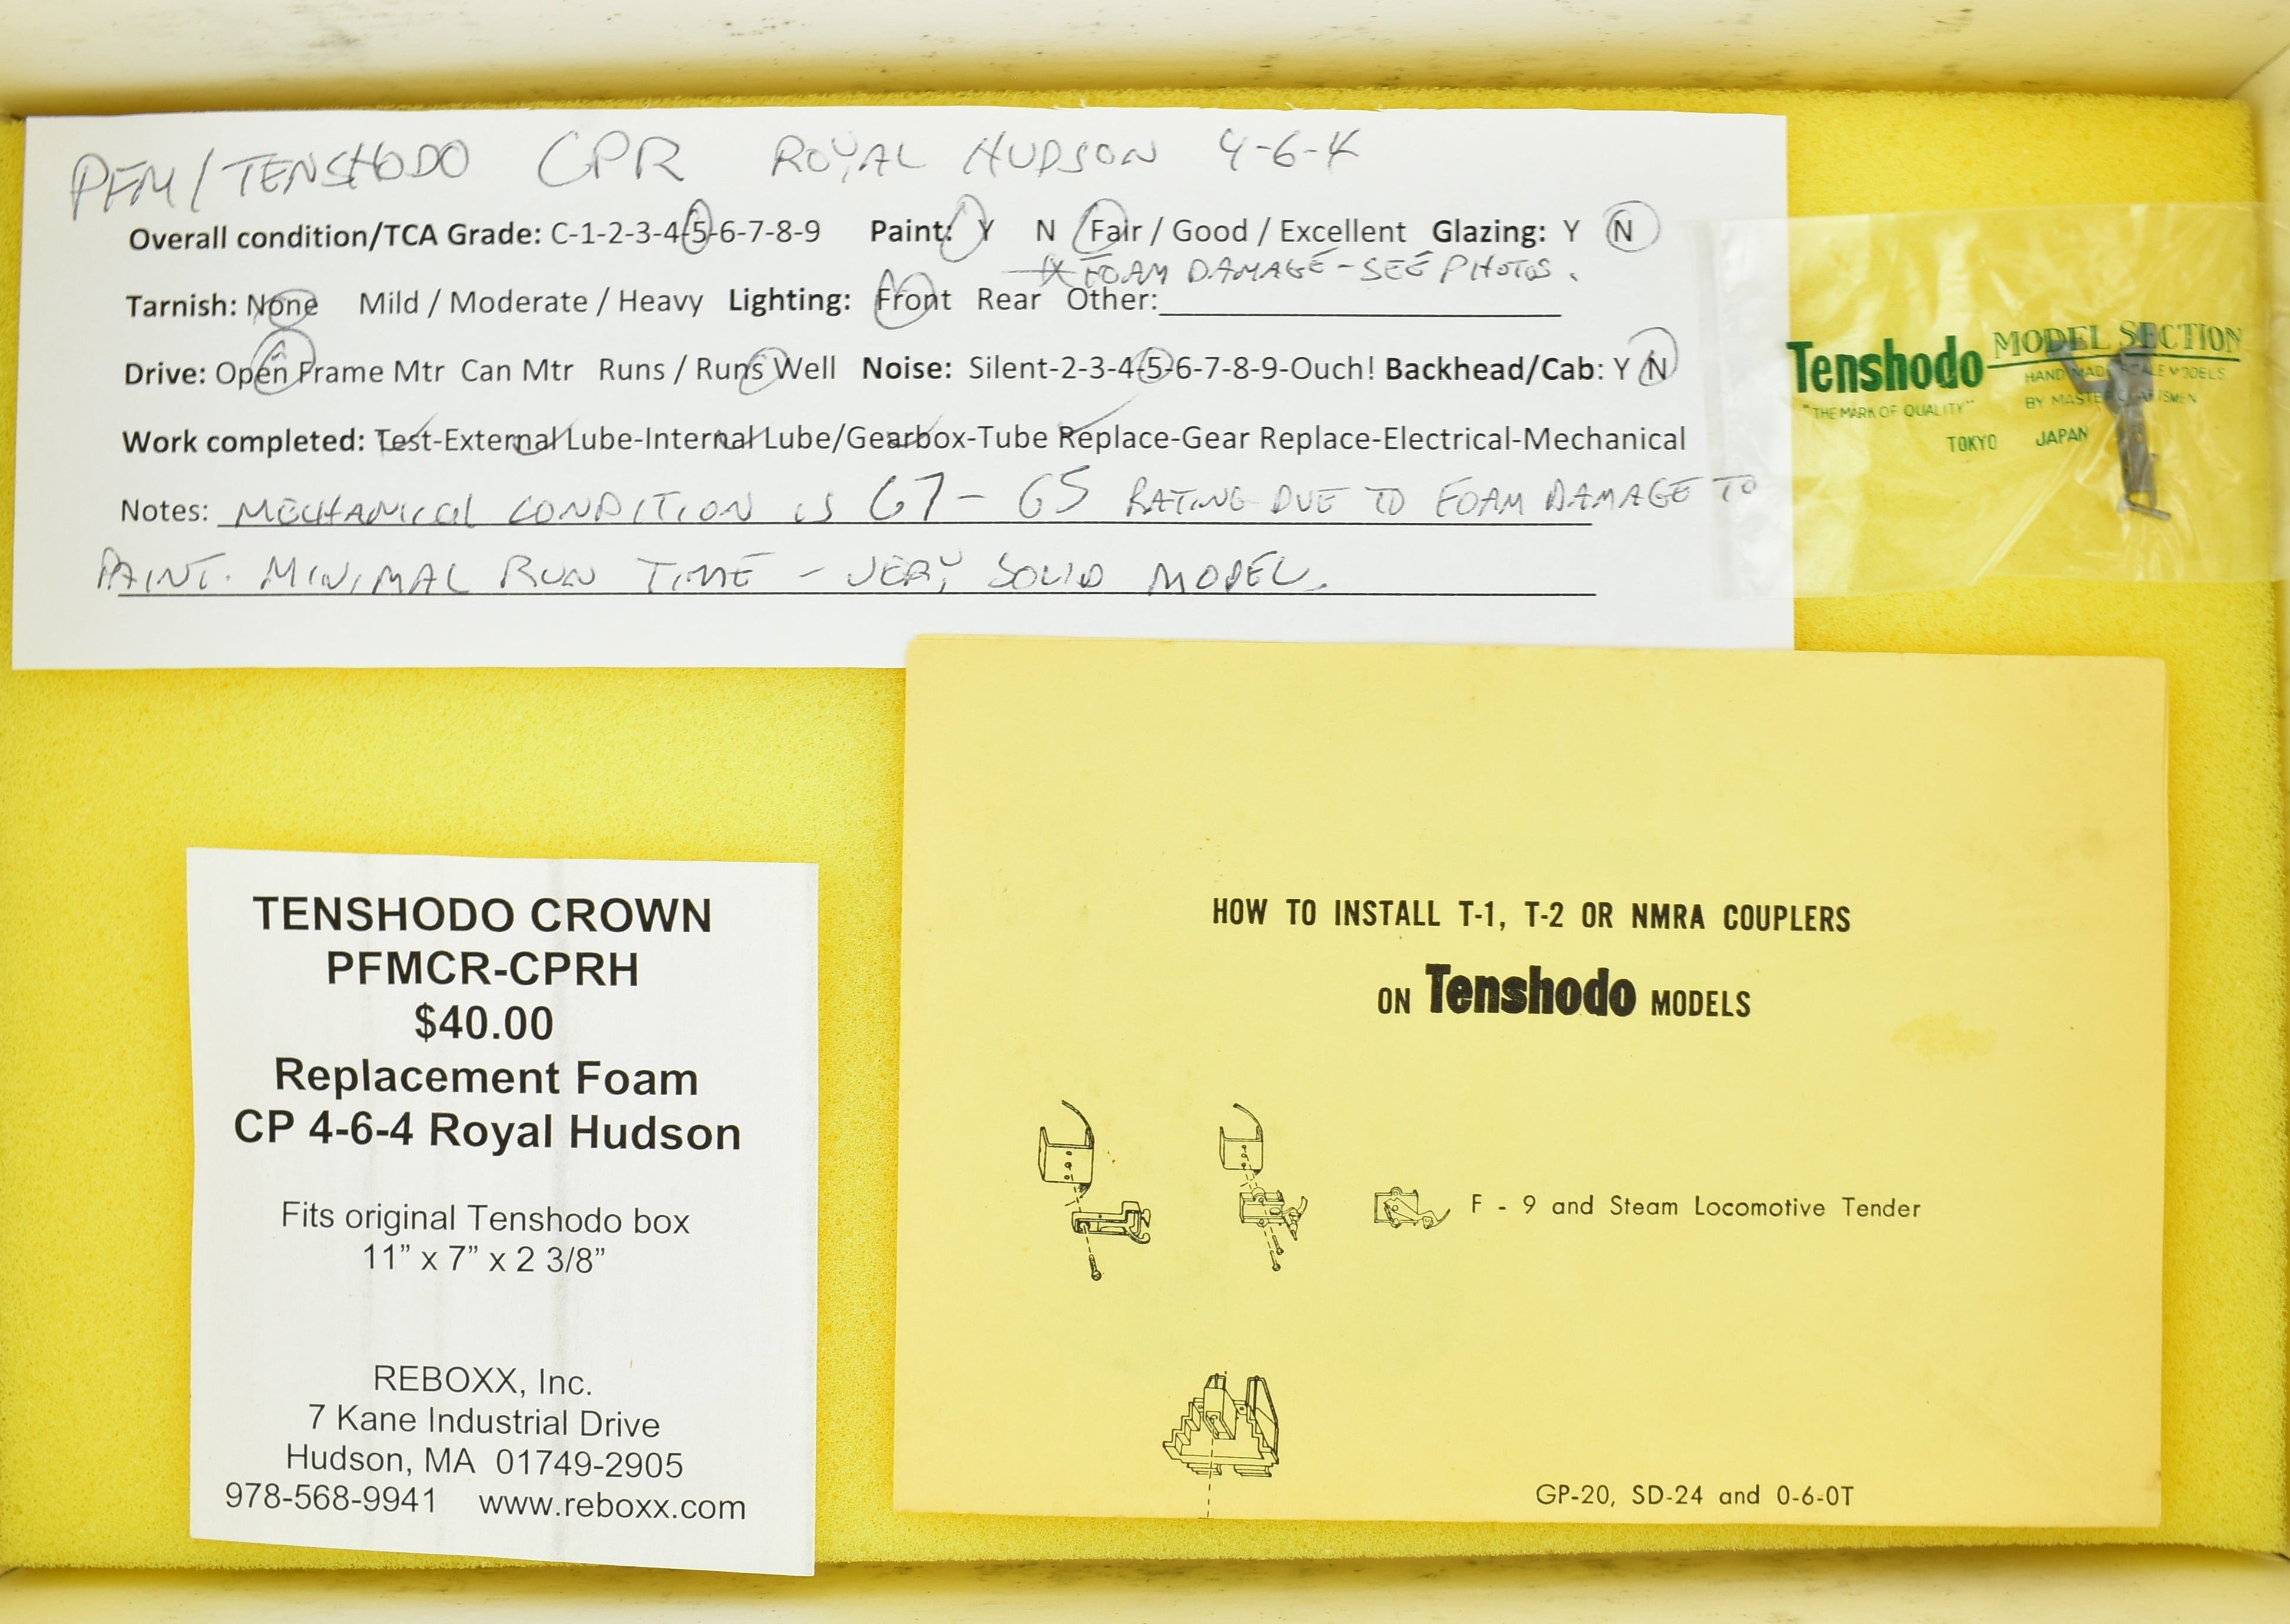 PFM/TENSHODO CPR ROYAL HUDSON 4-6-4
Overall condition/TCA Grade: C-1-2-3-4-5-6-7-8-9 Paint: Y N Fair / Good / Excellent Glazing: Y N
* FOAM DAMAGE - SEE PHOTOS.
Tarnish: None Mild / Moderate / Heavy Lighting: Front Rear Other:
Drive: Open Frame Mtr Can Mtr Runs / Runs Well Noise: Silent-2-3-4-5-6-7-8-9-Ouch! Backhead/Cab: Y N
Work completed: Test-External Lube-Internal Lube/Gearbox-Tube Replace-Gear Replace-Electrical-Mechanical
Notes: MECHANICAL CONDITION IS C7 - C5 RATING DUE TO FOAM DAMAGE TO
PAINT. MINIMAL RUN TIME - VERY SOLID MODEL.
Tenshodo MODEL SECTION
HAND MADE SCALE MODELS
"THE MARK OF QUALITY" BY MASTER CRAFTSMEN
TOKYO JAPAN
TENSHODO CROWN
PFMCR-CPRH
$40.00
Replacement Foam
CP 4-6-4 Royal Hudson
Fits original Tenshodo box
11” x 7” x 2 3/8”
REBOXX, Inc.
7 Kane Industrial Drive
Hudson, MA 01749-2905
978-568-9941 www.reboxx.com
HOW TO INSTALL T-1, T-2 OR NMRA COUPLERS
ON Tenshodo MODELS
F - 9 and Steam Locomotive Tender
GP-20, SD-24 and 0-6-0T